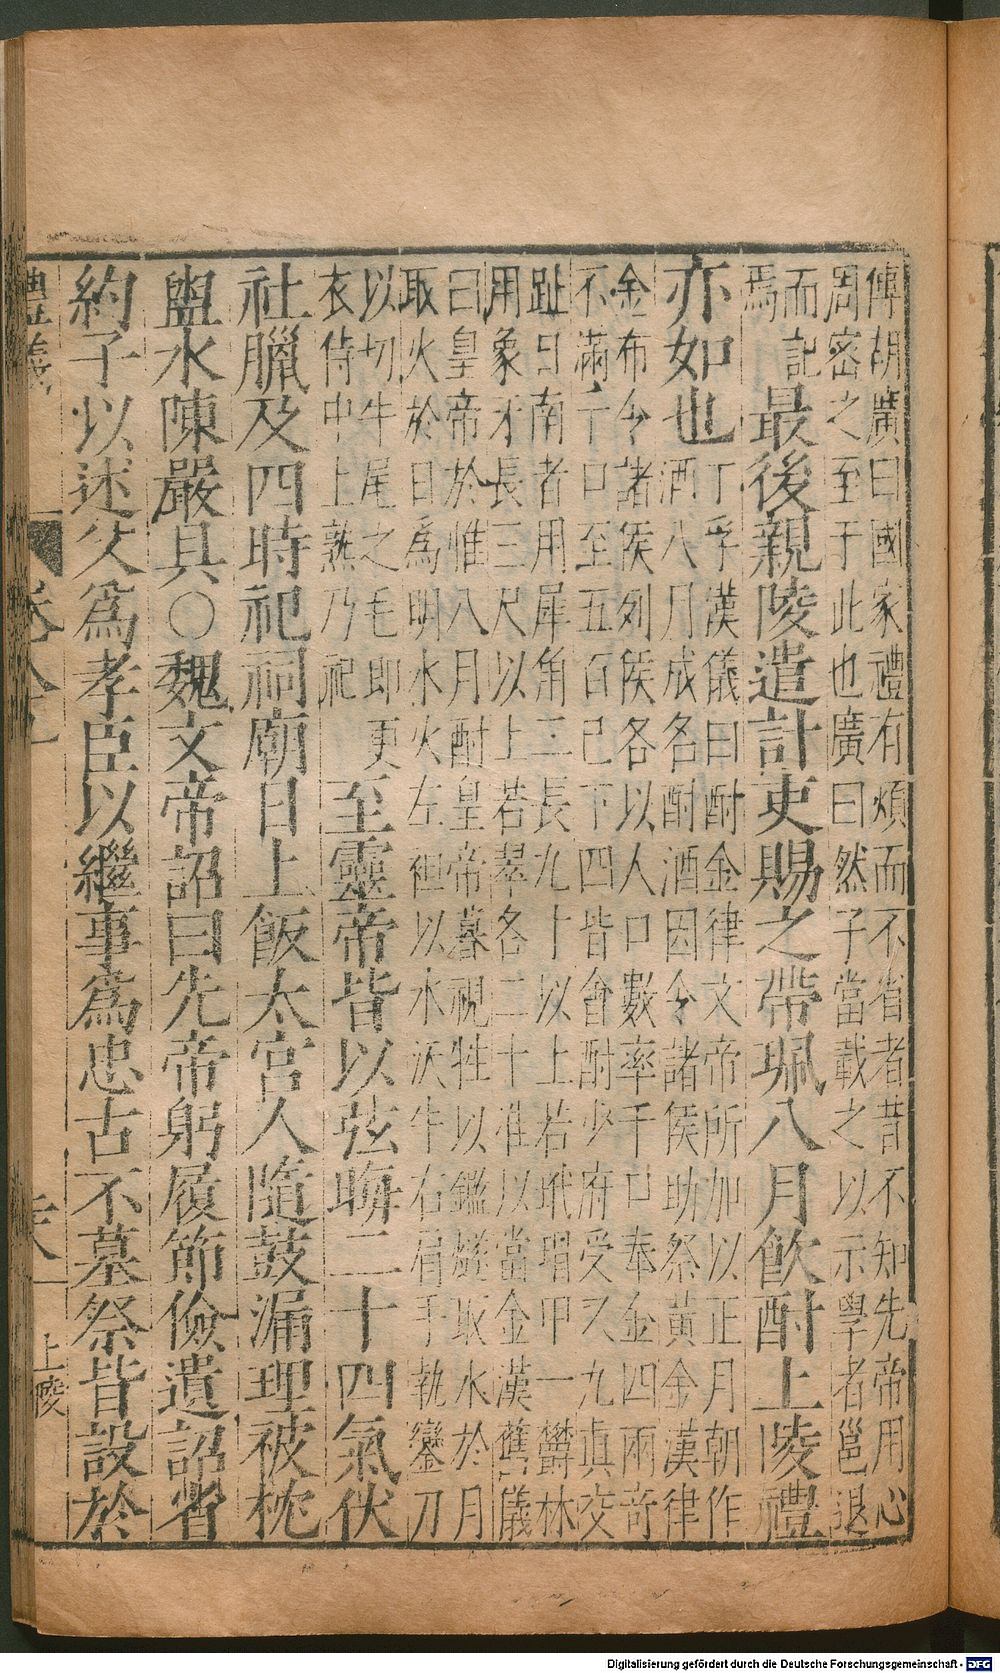 傅胡廣曰國家禮有煩而不省者昔不知先帝用心
周密之至于此也廣曰然子當載之以示學者邕退
而記
焉
最後親陵遣計吏賜之帶珮八月飲酎上陵禮
亦如也
丁孚漢儀曰酎金律文帝所加以正月朝作
酒八月成名酎酒因令諸侯助祭黃金漢律
金布令諸侯列侯各以人口數率千口奉金四兩奇
不滿千口至五百已下四皆會酎少府受又九真交
趾日南者用犀角二長九十以上若玳瑁甲一鬱林
用象牙長三尺以上若翠各二十准以當金漢舊儀
曰皇帝於惟八月酎皇帝暮視牲以鑑燧取水於月
取火於日爲明水火左袒以水沃牛右肩手執鸞刀
以切牛尾之毛即更
衣侍中上熟乃祀
至靈帝皆以弦晦二十四氣伏
社臘及四時祀祠廟日上飯太宮人隨鼓漏理被枕
盥水陳嚴具○魏文帝詔曰先帝躬履節儉遺詔省
約子以述父爲孝臣以繼事爲忠古不墓祭皆設於
上陵
Digitalisierung gefördert durch die Deutsche Forschungsgemeinschaft - DFG